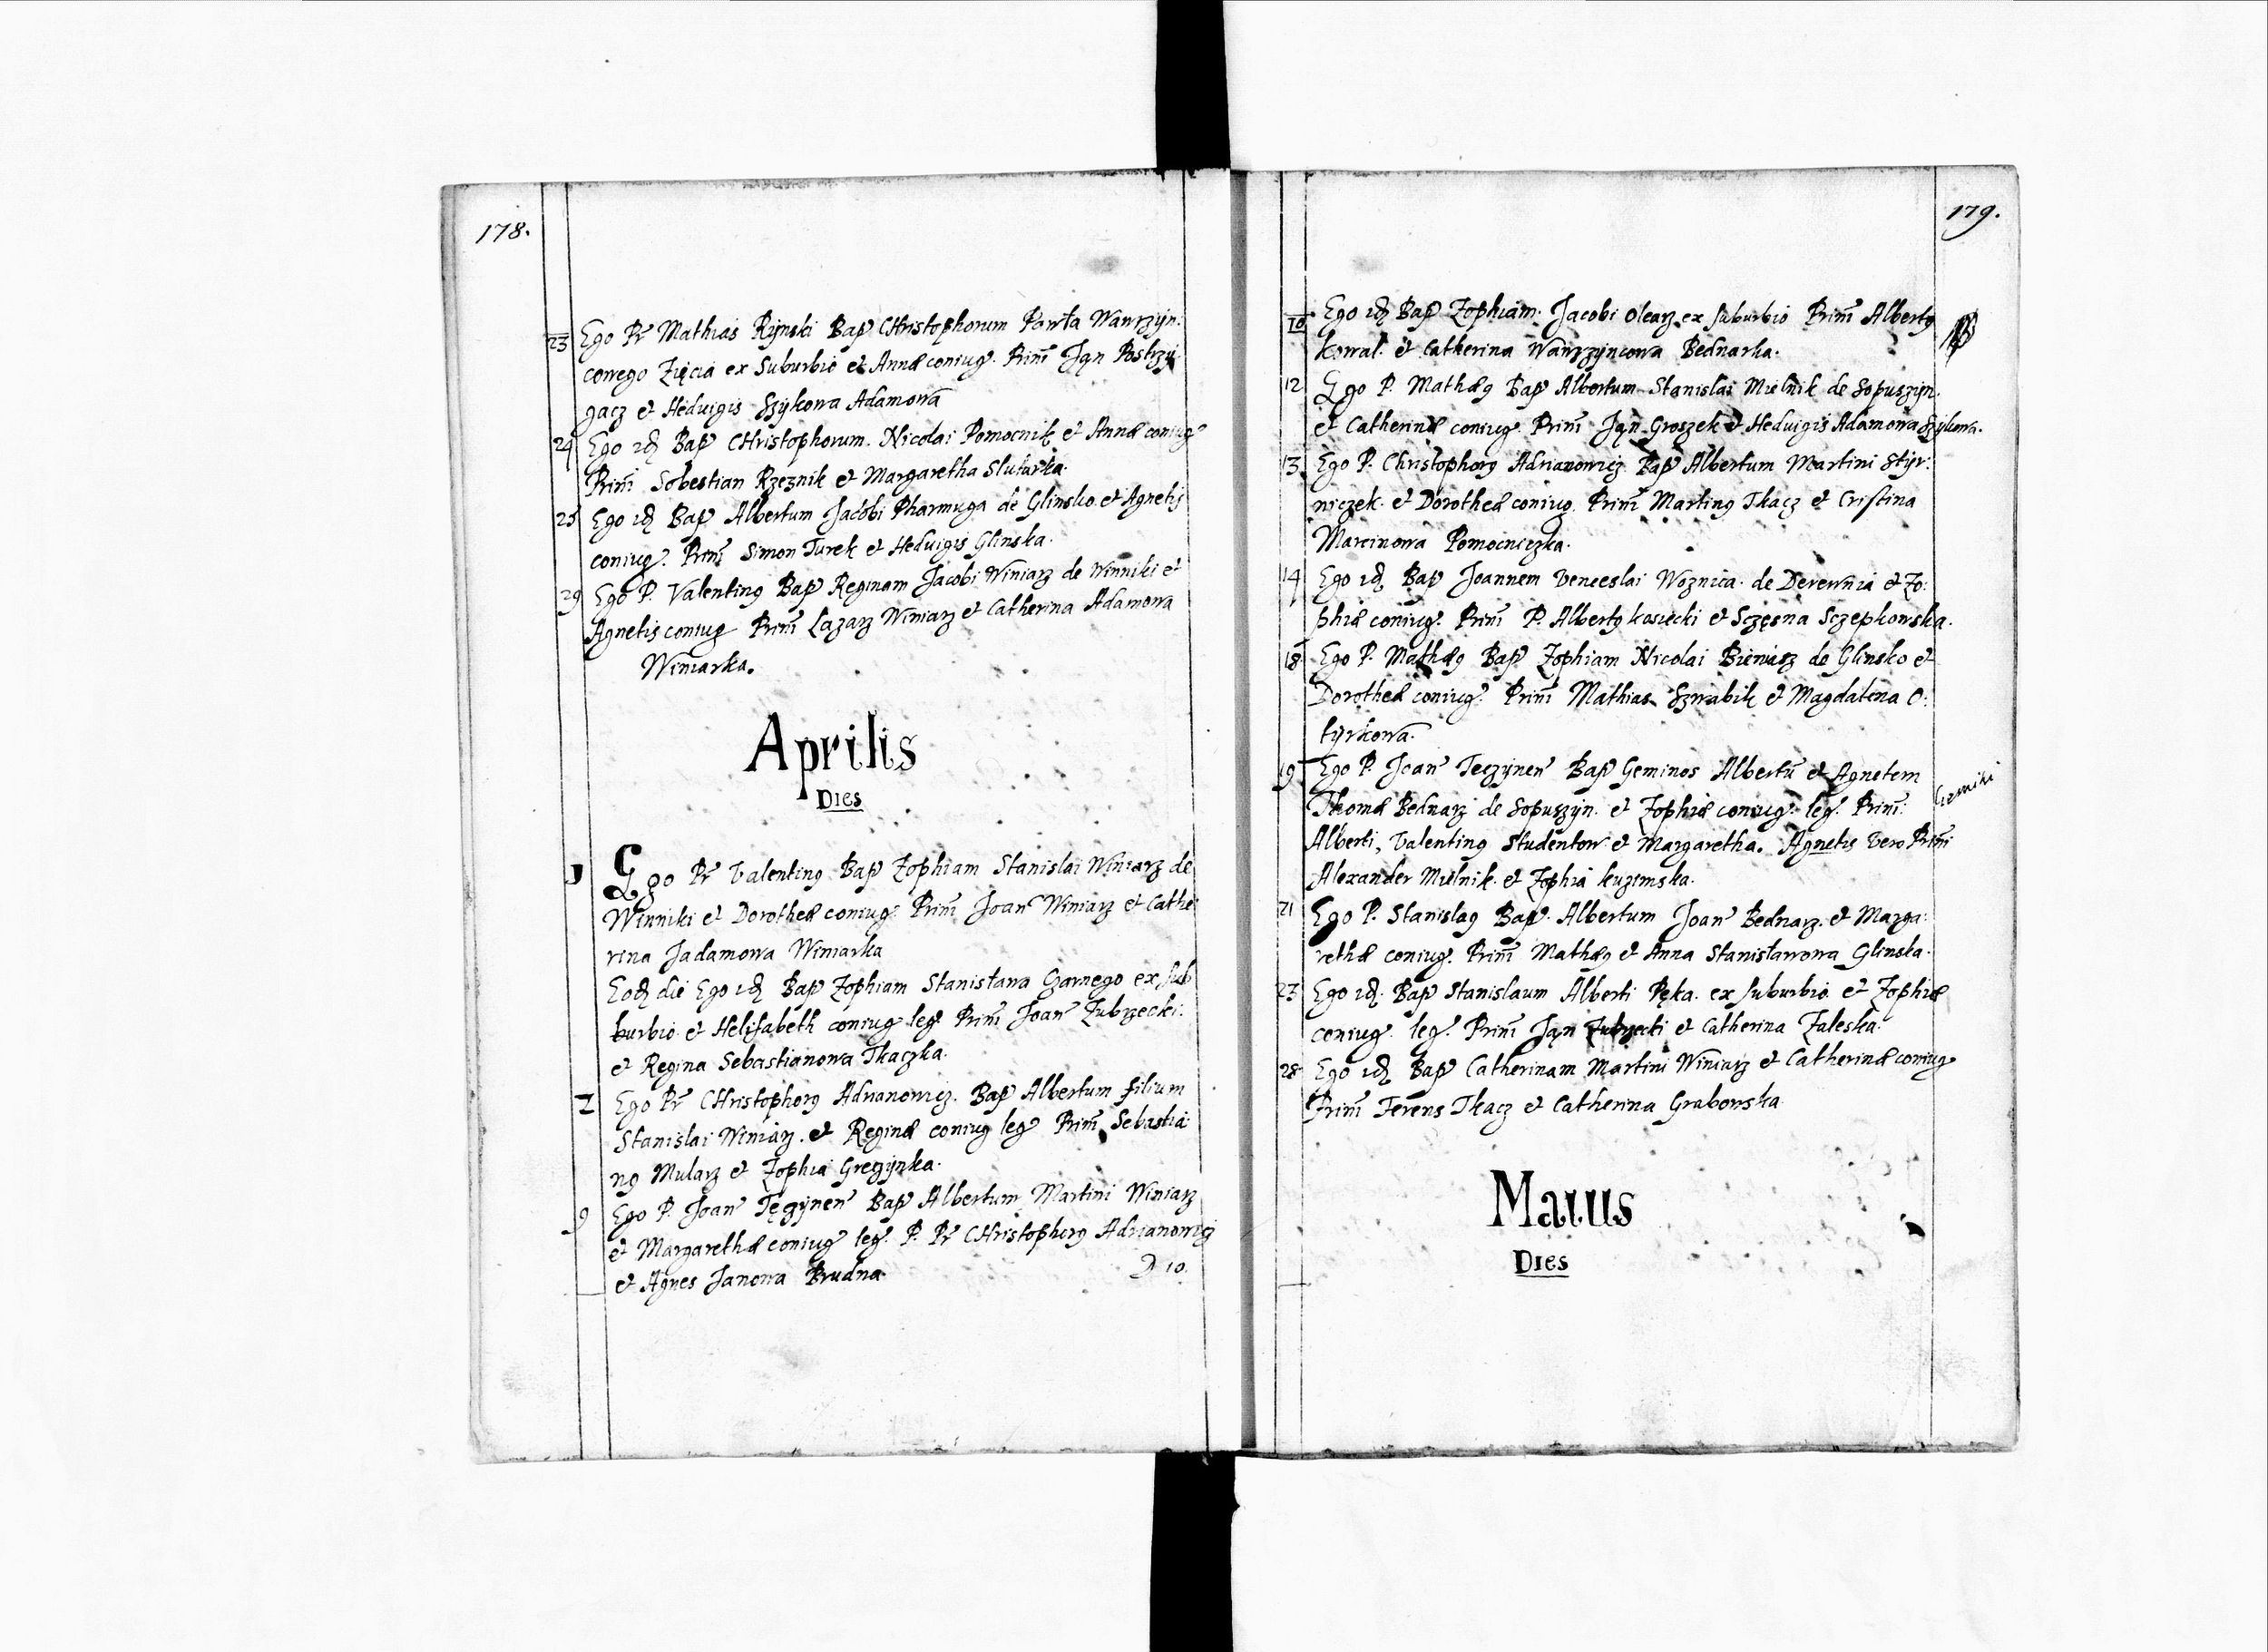 178.
23 Ego Pr Mathias Rynski Bap Christophorum Pawła Wawrzyn:
cowego Zięcia ex Suburbio et Annæ coniug. Prim Jan Postrzy
gacz et Hedvigis Szykowa Adamowa
24 Ego id Bap Christophorum Nicolai Pomocnik et Annæ coniug
Prim Sobestian Rzeznik et Margaretha Slutarka.
25 Ego id Bap Albertum Jacobi Pharmuga de Glinsko et Agnetis
coniug. Prim Simon Turek et Hedvigis Glinska.
29 Ego P. Valentinus Bap Reginam Jacobi Winiarz de Winniki et
Agnetis coniug Prim Lazarz Winiarz et Catherina Adamowa
Winiarka.
Aprilis
Dies
1 Ego Pr Valentinus Bap Zophiam Stanislai Winiarz de
Winniki et Dorotheæ coniug. Prim Joan Winiarz et Cathe
rina Jadamowa Winiarka
Eod die Ego id Bap Zophiam Stanisława Czarnego ex Sub
burbio et Helisabeth coniug leg Prim Joan Zubrzecki:
et Regina Sebastianowa Tkaczka.
7 Ego Pr Christophorus Adrianowicz. Bap Albertum filium
Stanislai Winiarz. et Reginæ coniug leg Prim Sebastia
nus Mularz et Zophia
9 Ego P. Joan Tęczynen Bap Albertum Martini Winiarz
et Margarethæ coniug leg. P. Pr Christophorus Adrianowicz
et Agnes Janowa Brudna. D 10.
179.
10 Ego id Bap Zophiam Jacobi Olearz ex suburbio Prim Albertus
Kowal. et Catherina Wawrzyncowa Bednarka.
12 Ego P. Mathæus Bap Albertum Stanislai Mielnik de Sopuszyn.
et Catherinæ coniug. Prim Jan Groszek et Hedvigis Adamowa Szykowa.
13 Ego P. Christophorus Adrianowicz Bap Albertum Martini Styr:
niczek. et Dorotheæ coniug. Prim Martinus Tkacz et Cristina
Marcinowa Pomocniczka.
14 Ego id Bap Joannem Venceslai Woznica. de Derewnia et Zo:
phiæ coniug. Prim P. Albertus Kosiecki et Sczęsna Sczepkowska.
18 Ego P. Mathæus Bap Zophiam Nicolai Bieniasz de Glinsko et
Dorotheæ coniug. Prim Mathias Szwabik et Magdalena O:
tyrkowa.
19 Ego P. Joan Teczynen Bap Geminos Albertu et Agnetem Gemini
Thomæ Bednarz de Sopuszyn. et Zophiæ coniug. leg. Prim:
Alberti, Valentinus Studentow et Margaretha. Agnetis vero Prim
Alexander Mielnik. et Zophia Kuzimska.
21 Ego P. Stanislaus Bap. Albertum Joan Bednarz. et Marga:
rethæ coniug. Prim Mathæus et Anna Stanisławowa Glinska.
23 Ego id. Bap Stanislaum Alberti Pęka. ex suburbio et Zophiæ
coniug. leg. Prim Jan Zubrzecki et Catherina Zaleska.
28 Ego id Bap Catherinam Martini Winiarz et Catherinæ coniug
Prim Ferens Tkacz et Catherina Grabowska
Maius
Dies